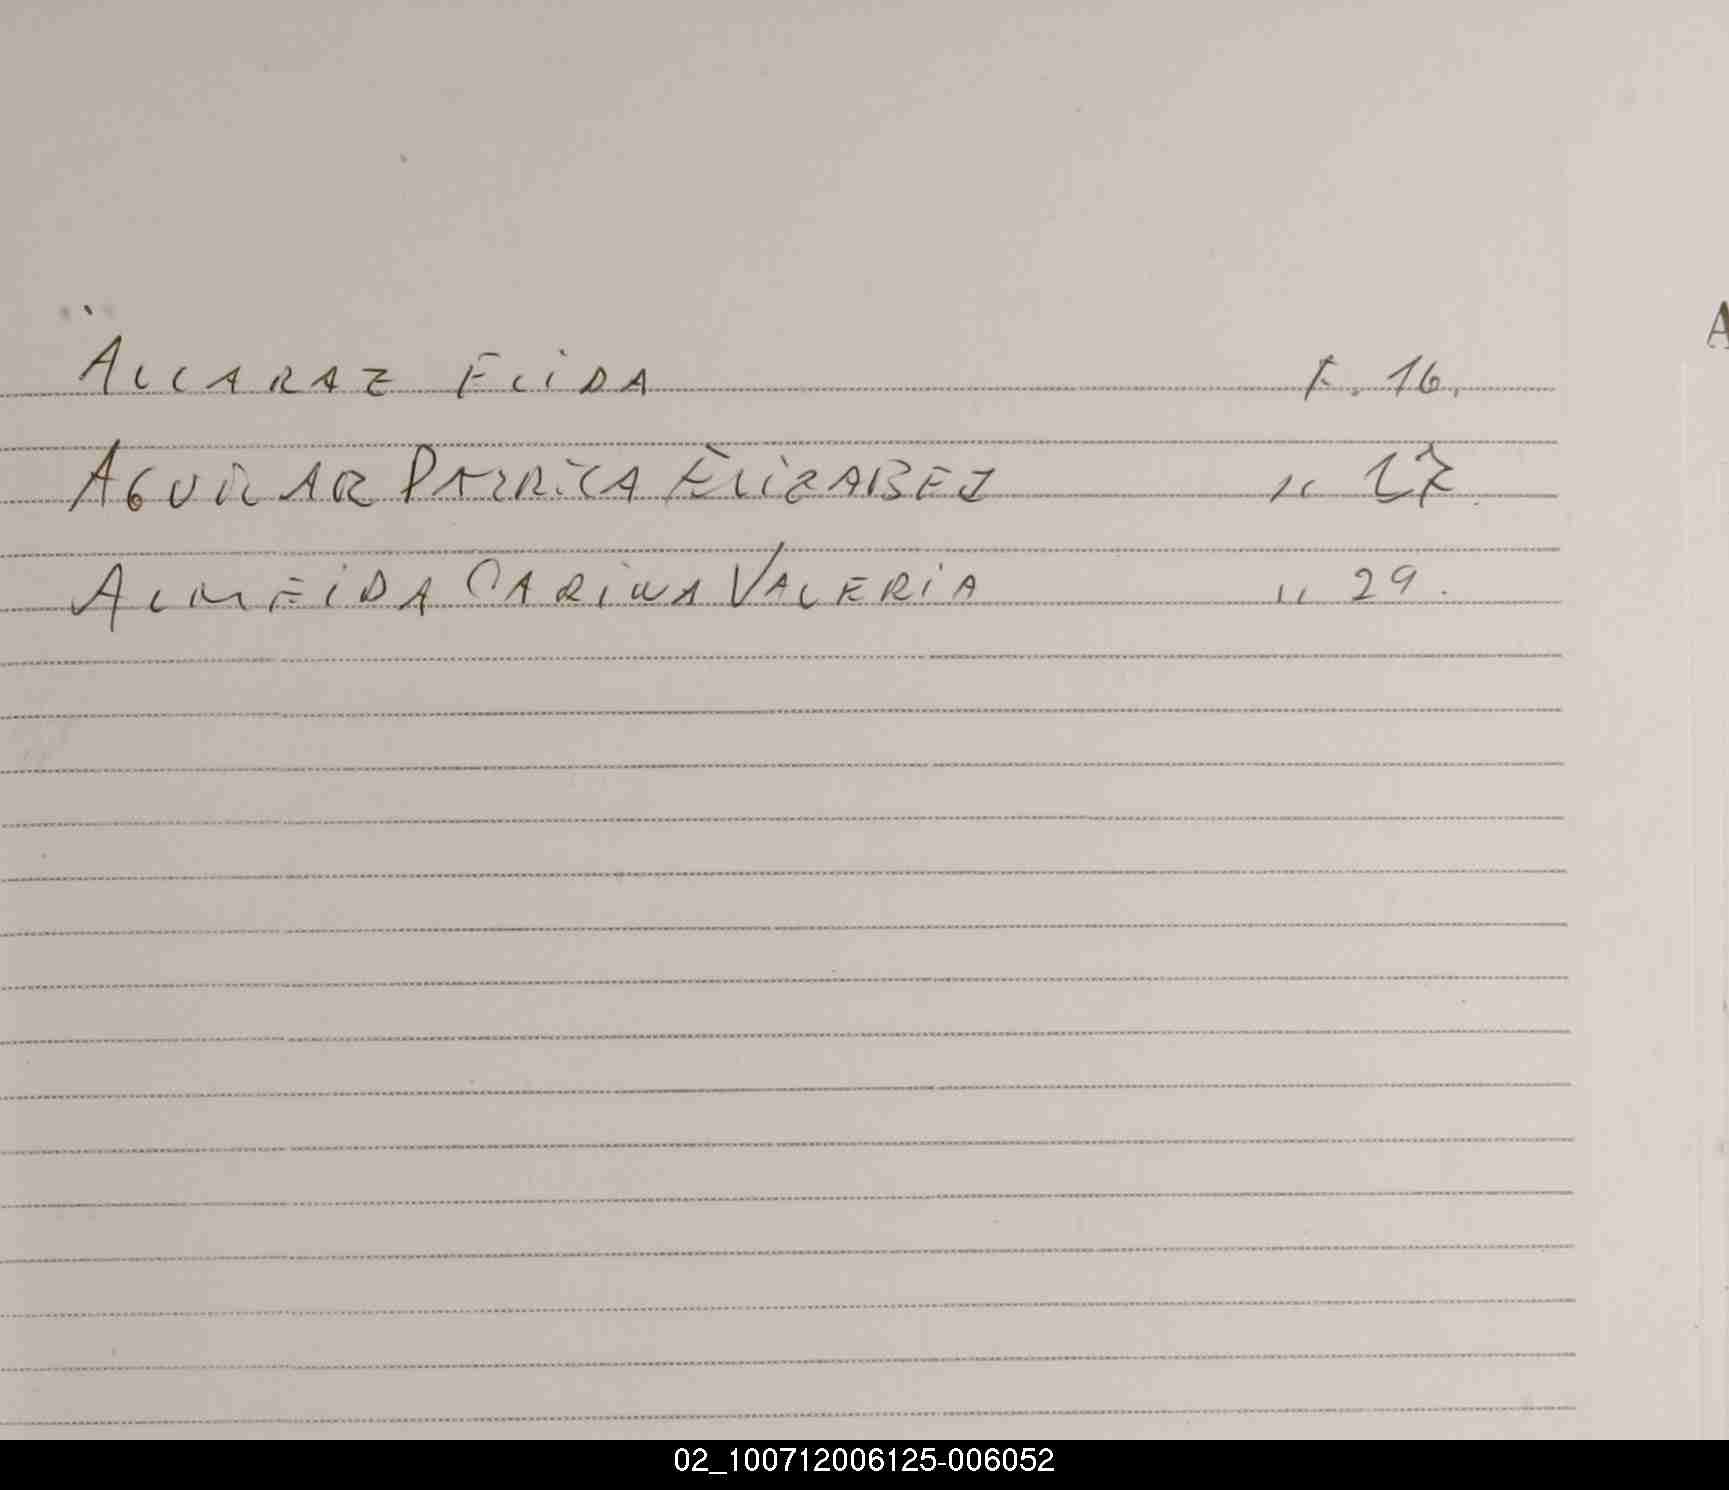 A
ALCARAZ ELIDA F. 16.
AGUILAR PATRICA ELIZABET " 17.
ALMEIDA CARINA VALERIA " 29.
02_100712006125-006052